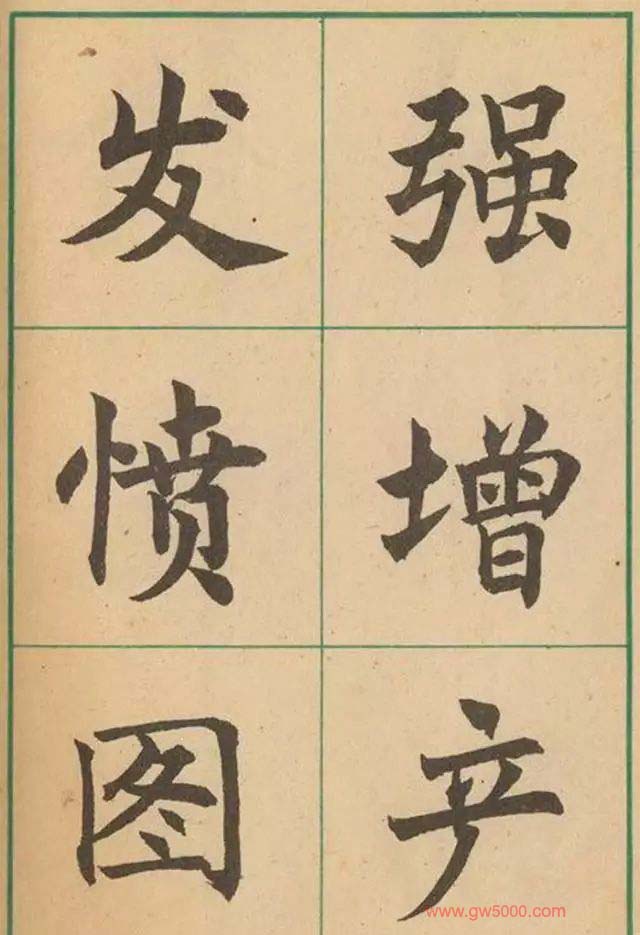 发愤图
强增产
www.gw5000.com